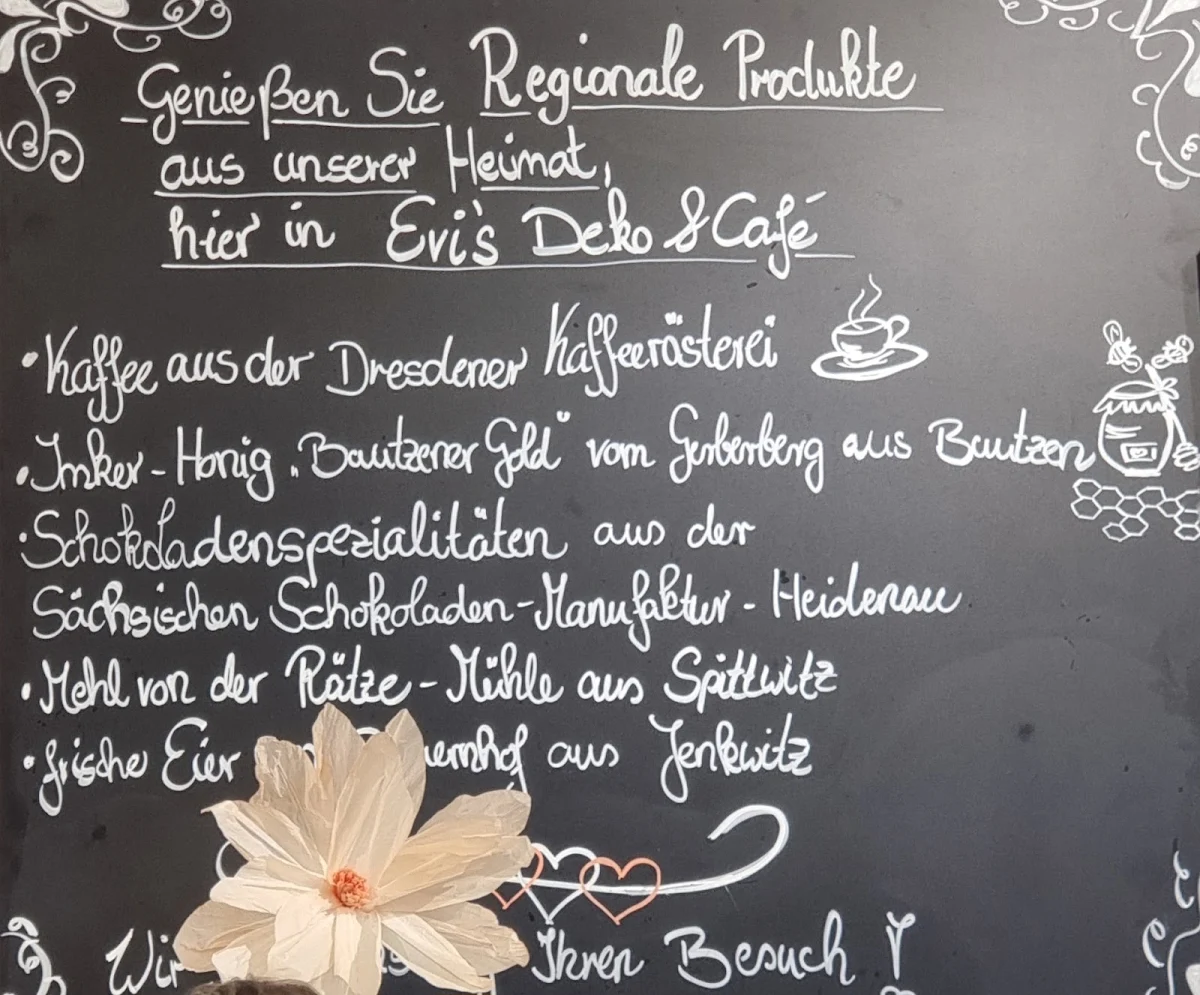 Genießen Sie Regionale Produkte
aus unserer Heimat,
hier in Evi's Deko & Café
• Kaffee aus der Dresdener Kaffeerösterei
• Imker-Honig „Bautzener Gold" vom Gerberberg aus Bautzen
• Schokoladenspezialitäten aus der
Sächsischen Schokoladen-Manufaktur - Heidenau
• Mehl von der Rätze-Mühle aus Spittwitz
• frische Eier aus Jenkwitz
Wir Ihren Besuch!